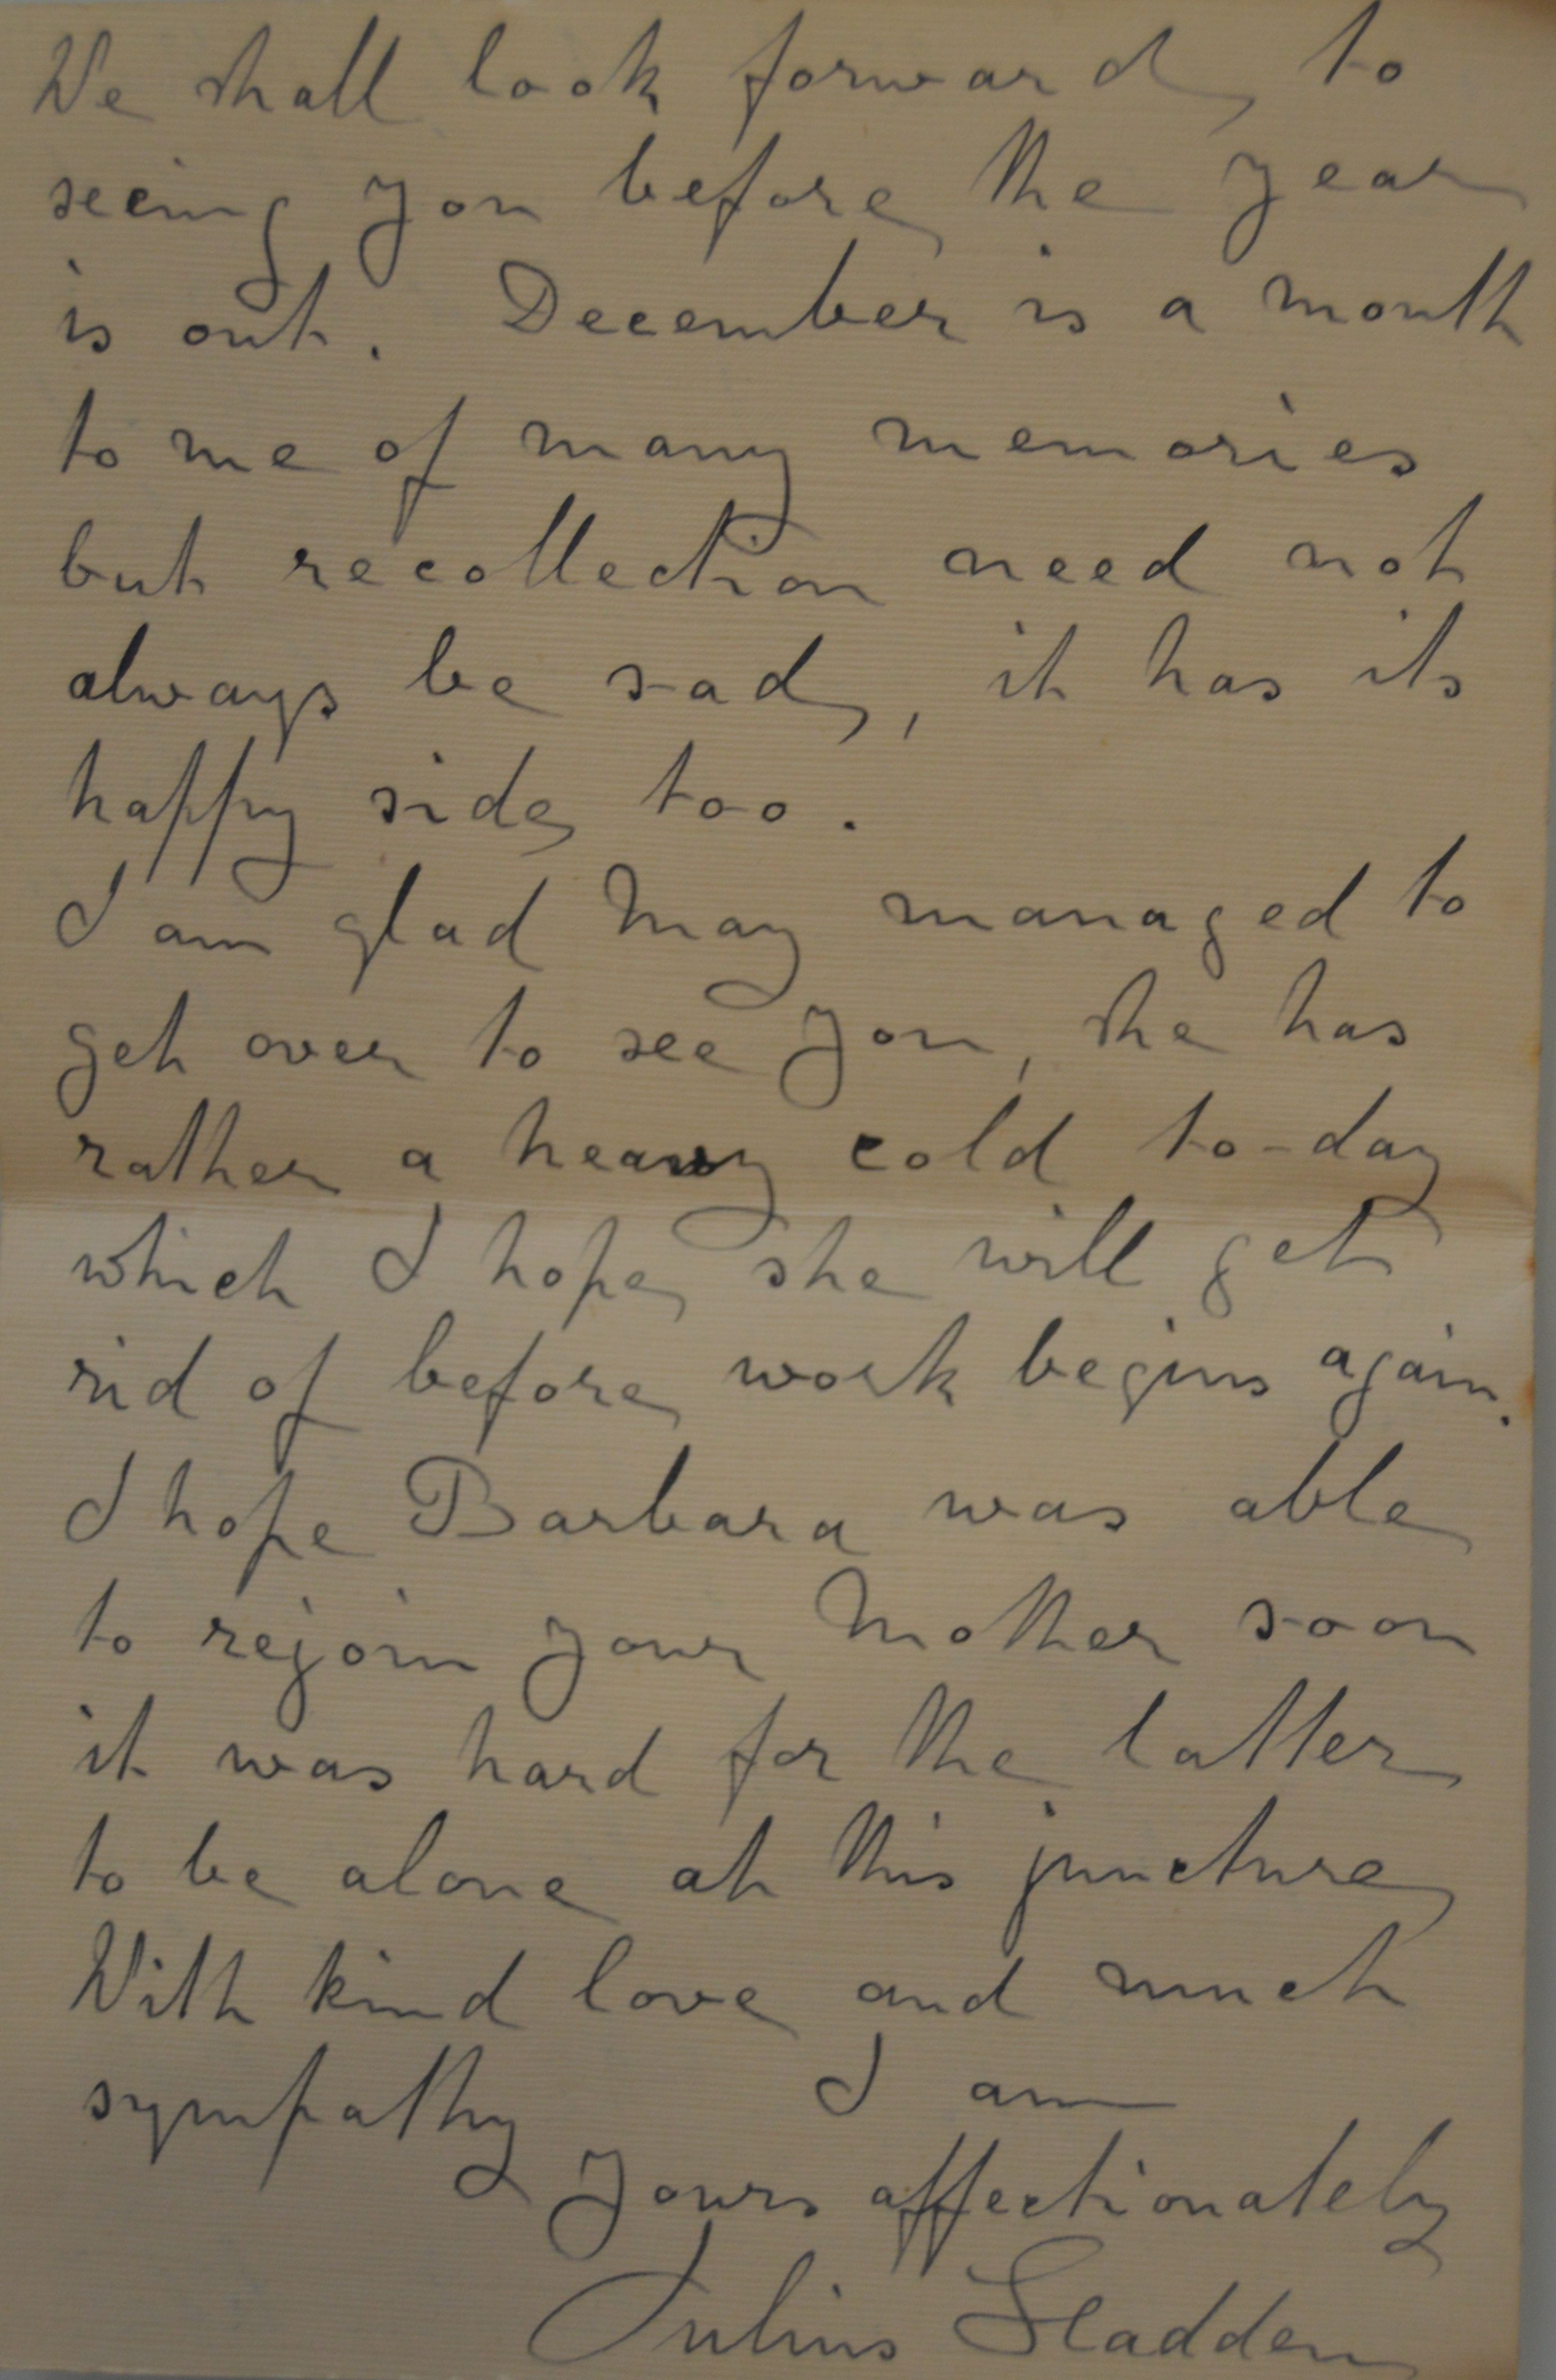 We shall look forward to
seeing you before the year
is out. December is a month
to me of many memories
but recollection need not
always be sad, it has its
happy side too.
I am glad May managed to
get over to see you, she has
rather a heavy cold to-day
which I hope she will get
rid of before work begins again.
I hope Barbara was able
to rejoin your Mother soon
it was hard for the latter
to be alone at this juncture
With kind love and much
sympathy I am
yours affectionately
Julius Sladden